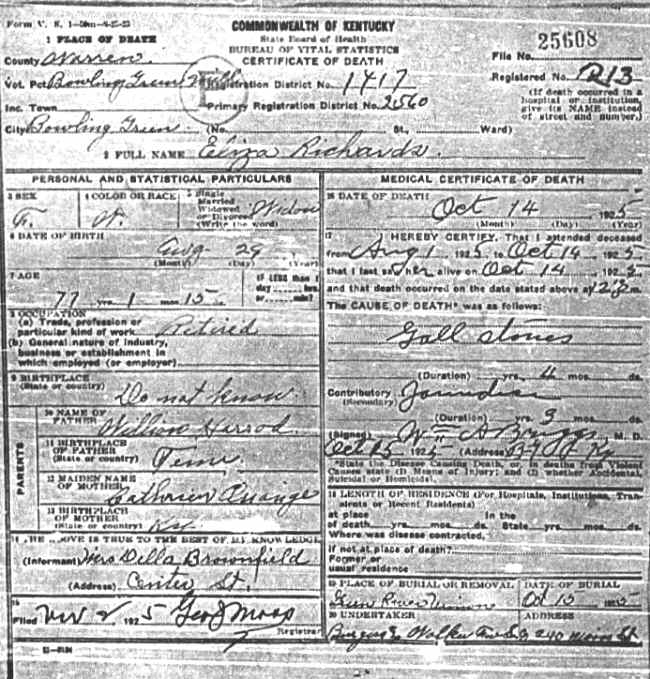 Form V. S. 1
COMMONWEALTH OF KENTUCKY
State Board of Health
BUREAU OF VITAL STATISTICS
CERTIFICATE OF DEATH
1 PLACE OF DEATH
County Warren
File No. 25608
Vot. Pct Bowling Green
Registration District No. 1417
Registered No. 213
Inc. Town
Primary Registration District No. 2560
(If death occurred in a hospital or institution, give its NAME instead of street and number.)
City Bowling Green (No. St., Ward)
2 FULL NAME Eliza Richards.
PERSONAL AND STATISTICAL PARTICULARS
3 SEX F.
4 COLOR OR RACE W.
5 Single Married Widowed or Divorced (Write the word) Widow
6 DATE OF BIRTH Aug 29
(Month) (Day) (Year)
7 AGE
77 yrs. 1 mos. 15 ds.
IF LESS than 1 day ..... hrs. or ..... min?
8 OCCUPATION
(a) Trade, profession or particular kind of work Retired
(b) General nature of industry, business or establishment in which employed (or employer)
9 BIRTHPLACE
(State or country) Do not know
PARENTS
10 NAME OF FATHER William Herrod
11 BIRTHPLACE OF FATHER
(State or country) Tenn
12 MAIDEN NAME OF MOTHER
13 BIRTHPLACE OF MOTHER
(State or country) Ky
14 THE ABOVE IS TRUE TO THE BEST OF MY KNOWLEDGE
(Informant) Mrs Della Brownfield
(Address) Center St.
15
Filed Nov 2 1925 Geo J Moss
Registrar
MEDICAL CERTIFICATE OF DEATH
16 DATE OF DEATH
Oct 14 1925
(Month) (Day) (Year)
17 I HEREBY CERTIFY, That I attended deceased
from Aug 1 1925 to Oct 14 1925
that I last saw her alive on Oct 14 192
and that death occurred on the date stated above at m.
The CAUSE OF DEATH* was as follows:
Gall stones
(Duration) yrs. 4 mos. ds.
Contributory Jaundice
(Secondary)
(Duration) yrs. 3 mos. ds.
(Signed) Wm A Briggs M. D.
Oct 25 1925 (Address) B. G. Ky
*State the Disease Causing Death, or, in deaths from Violent Causes state (1) Means of Injury; and (2) whether Accidental, Suicidal or Homicidal.
18 LENGTH OF RESIDENCE (For Hospitals, Institutions, Transients or Recent Residents)
At place of death yrs. mos. ds. In the State yrs. mos. ds.
Where was disease contracted,
if not at place of death?
Former or usual residence
19 PLACE OF BURIAL OR REMOVAL
Green River Union
DATE OF BURIAL
Oct 15 1925
20 UNDERTAKER
ADDRESS
240 St